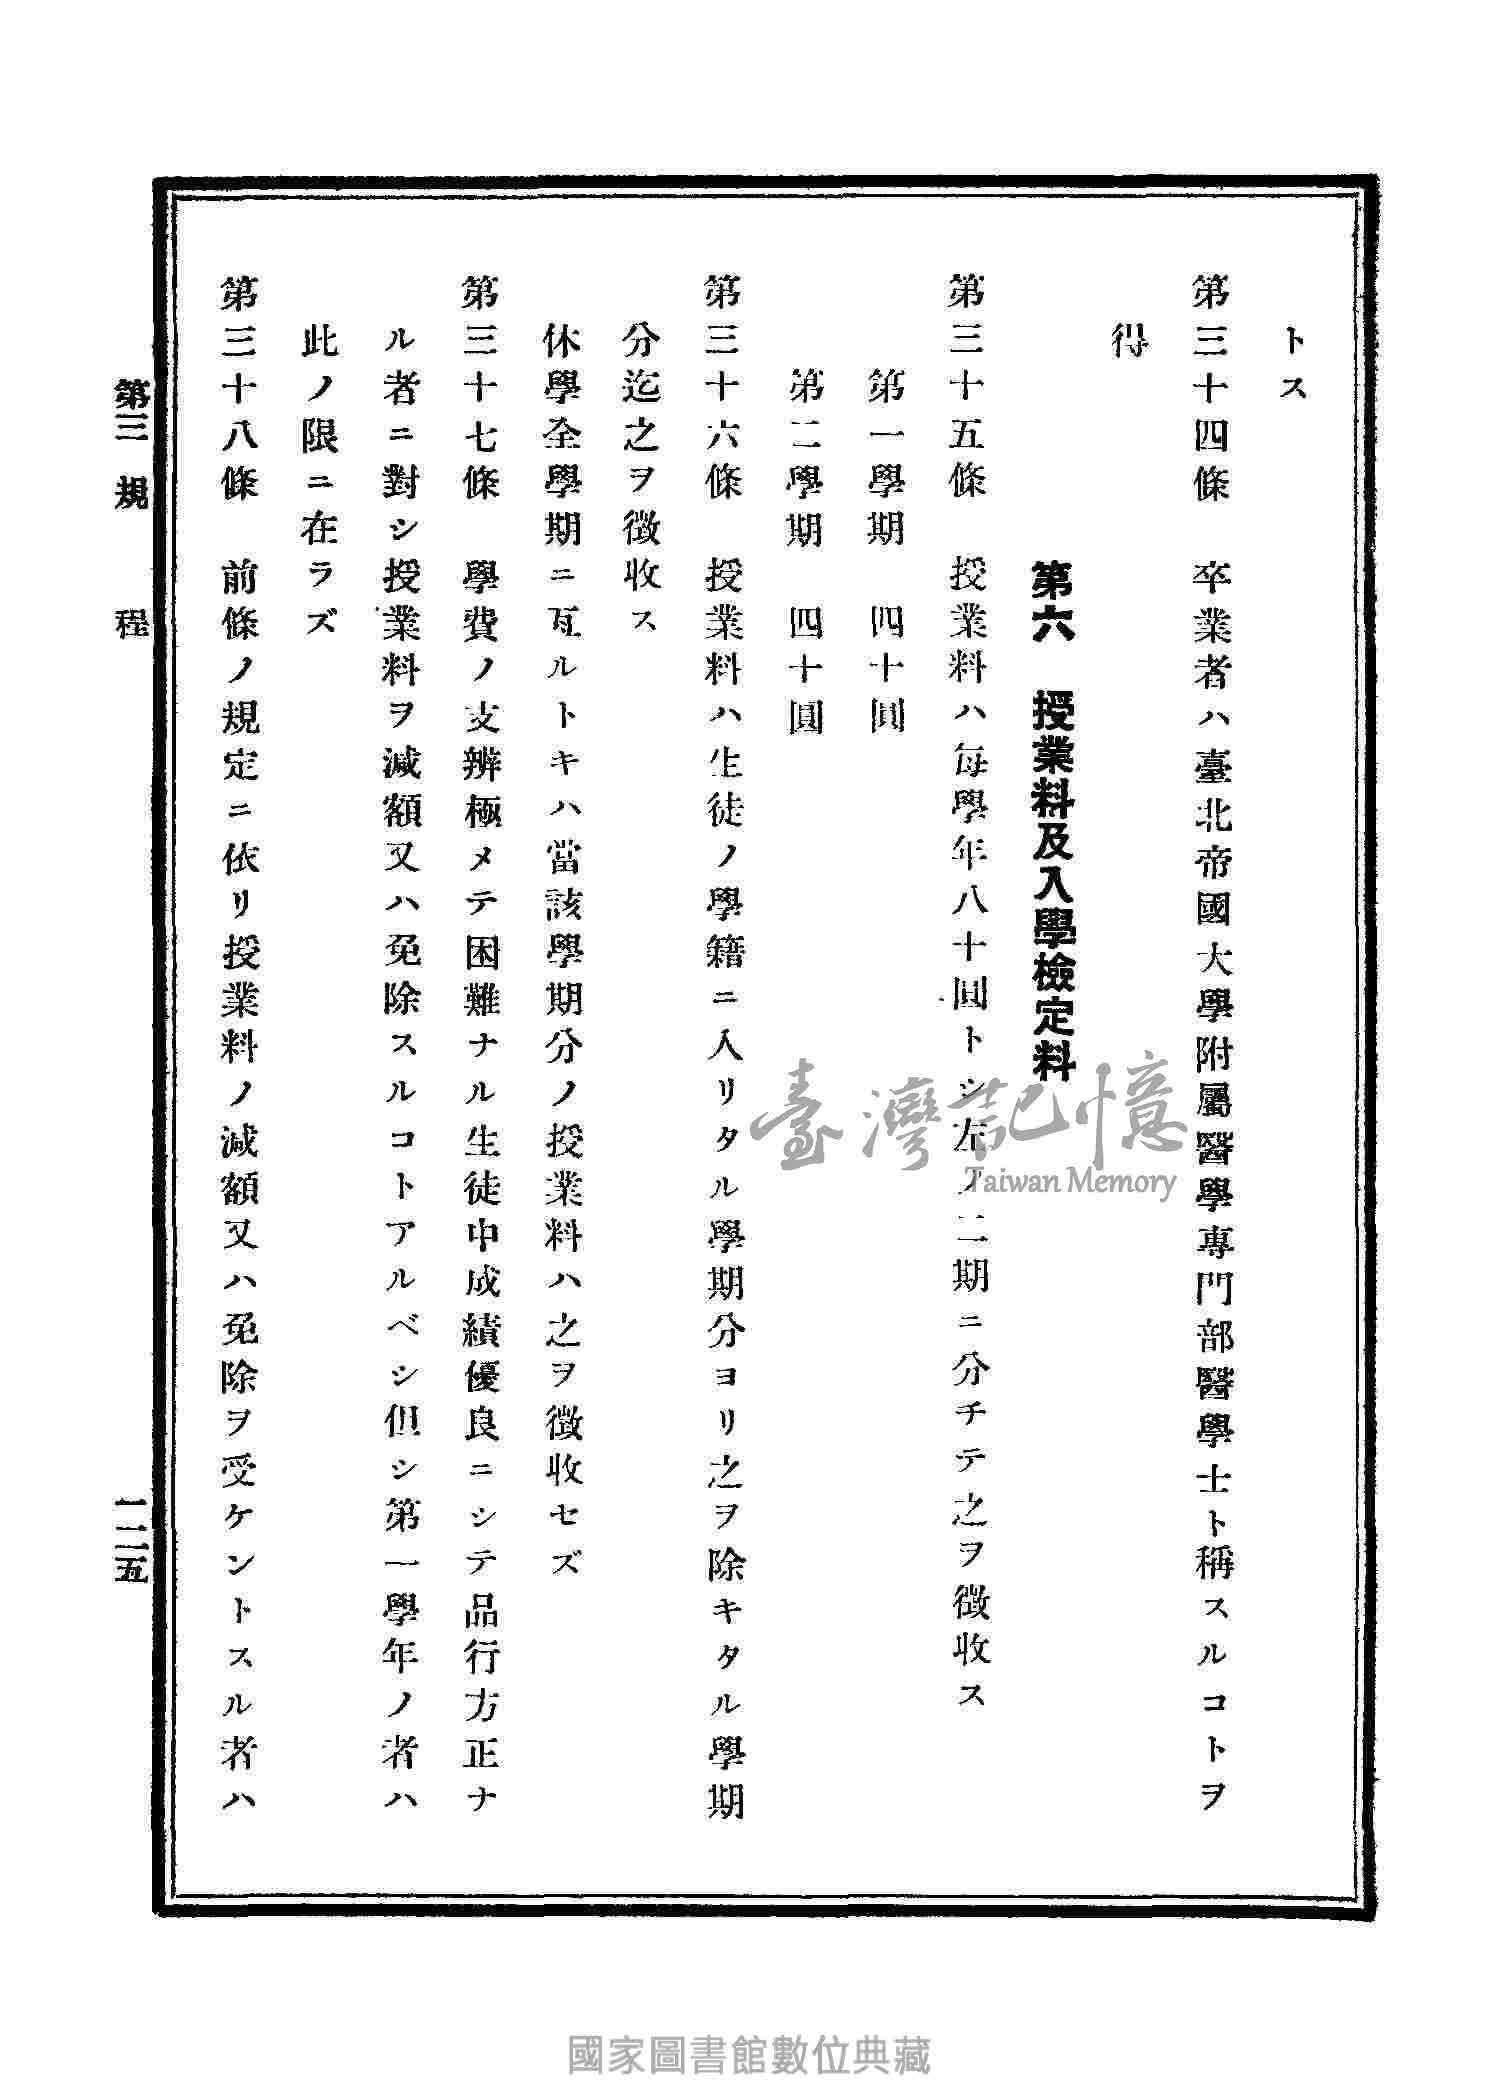 トス
第三十四條　卒業者ハ臺北帝國大學附屬醫學專門部醫學士ト稱スルコトヲ
得
第六　授業料及入學檢定料
第三十五條　授業料ハ每學年八十圓トシ左ノ二期ニ分チテ之ヲ徵收ス
第一學期　四十圓
第二學期　四十圓
第三十六條　授業料ハ生徒ノ學籍ニ入リタル學期分ヨリ之ヲ除キタル學期
分迄之ヲ徵收ス
休學全學期ニ亙ルトキハ當該學期分ノ授業料ハ之ヲ徵收セズ
第三十七條　學費ノ支辨極メテ困難ナル生徒中成績優良ニシテ品行方正ナ
ル者ニ對シ授業料ヲ減額又ハ免除スルコトアルベシ但シ第一學年ノ者ハ
此ノ限ニ在ラズ
第三十八條　前條ノ規定ニ依リ授業料ノ減額又ハ免除ヲ受ケントスル者ハ
第三　規　程
一二五
臺灣記憶
Taiwan Memory
國家圖書館數位典藏